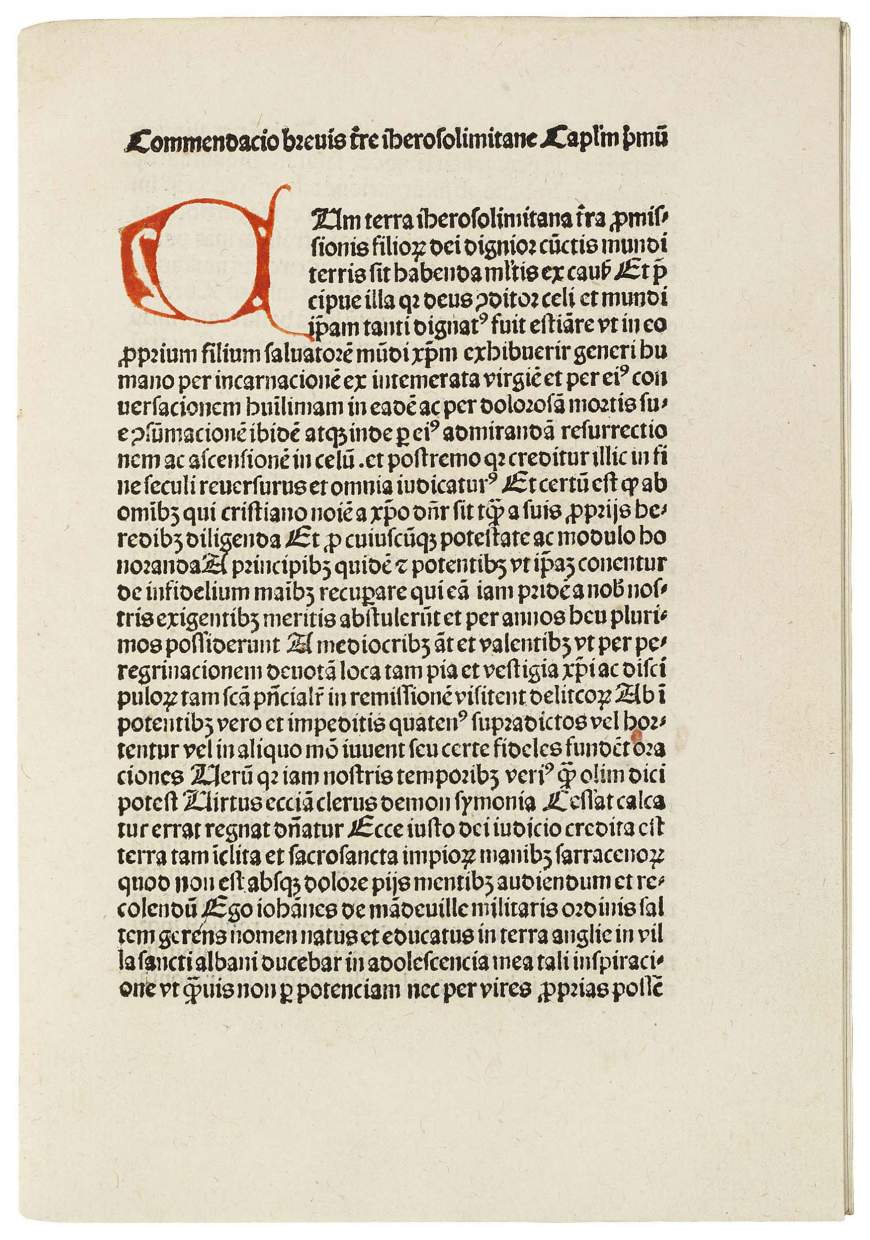 Commendacio breuis t̄re iherosolimitane Capl'm p̄mū
CUm terra iherosolimitana t̄ra ꝓmis⸗
sionis filioꝝ dei dignior cūctis mundi
terris sit habenda ml̄tis ex cauẞ Et p̄
cipue illa qꝛ deus ꝯditor celi et mundi
ip̄am tanti dignatꝰ fuit estiāre vt in eo
ꝓprium filium saluatorē mūdi xp̄m exhibuerir generi hu
mano per incarnacionē ex intemerata virgīe et per eiꝰ con
uersacionem humilimam in eadē ac per dolorosā mortis su⸗
e ꝯsūmacionē ibidē atqꝫ inde ꝑ eiꝰ admirandā resurrectio
nem ac ascensionē in celū .et postremo qꝛ creditur illic in fi
ne seculi reuersurus et omnia iudicaturꝰ Et certū est ꝙ ab
omībꝫ qui cristiano noīe a xp̄o dn̄r sit tꝙ̄ a suis ꝓprijs he⸗
redibꝫ diligenda Et ꝓ cuiuscūqꝫ potestate ac modulo ho
noranda A principibꝫ quidē ⁊ potentibꝫ vt ip̄aꝫ conentur
de infidelium maībꝫ recuꝑare qui eā iam pridē a nob̄ nos⸗
tris exigentibꝫ meritis abstulerūt et per annos heu pluri⸗
mos possiderunt A mediocribꝫ āt et valentibꝫ vt per pe⸗
regrinacionem deuotā loca tam pia et vestigia xp̄i ac disci
puloꝝ tam scā pn̄cialr̄ in remissionē visitent delitcoꝝ Ab ī
potentibꝫ vero et impeditis quatenꝰ supradictos vel hor⸗
tentur vel in aliquo mō iuuent seu certe fideles fundēt ora
ciones Uerū qꝛ iam nostris temporibꝫ veriꝰ ꝙ̄ olim dici
potest Uirtus ecciā clerus demon symonia Cessat calca
tur errat regnat dn̄atur Ecce iusto dei iudicio credita est
terra tam īclita et sacrosancta impioꝝ manibꝫ sarracenoꝝ
quod non est absqꝫ dolore pijs mentibꝫ audiendum et re⸗
colendū Ego iohānes de mādeuille militaris ordinis sal
tem gerens nomen natus et educatus in terra anglie in vil
la sancti albani ducebar in adolescencia mea tali inspiraci⸗
one vt ꝙ̄uis non ꝑ potenciam nec per vires ꝓprias possē